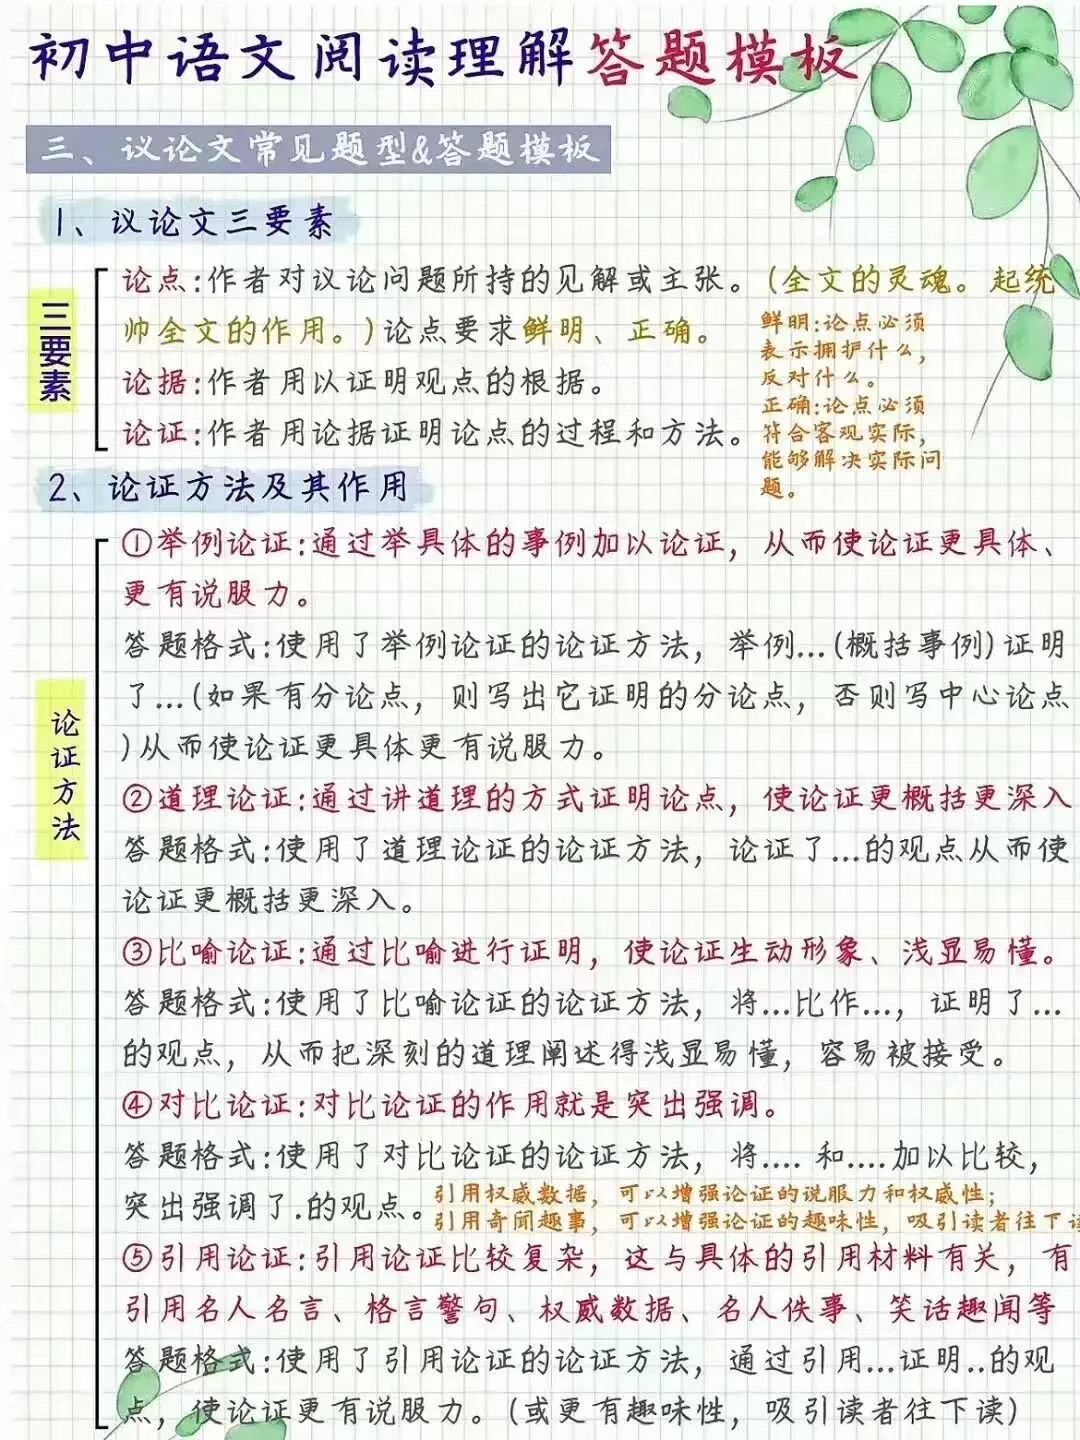 初中语文阅读理解答题模板
三、议论文常见题型&答题模板
1、议论文三要素
三要素
论点:作者对议论问题所持的见解或主张。(全文的灵魂。起统
帅全文的作用。)论点要求鲜明、正确。
鲜明:论点必须
表示拥护什么,
反对什么。
正确:论点必须
符合客观实际,
能够解决实际问
题。
论据:作者用以证明观点的根据。
论证:作者用论据证明论点的过程和方法。
2、论证方法及其作用
论证方法
①举例论证:通过举具体的事例加以论证,从而使论证更具体、
更有说服力。
答题格式:使用了举例论证的论证方法,举例...(概括事例)证明
了...(如果有分论点,则写出它证明的分论点,否则写中心论点
)从而使论证更具体更有说服力。
②道理论证:通过讲道理的方式证明论点,使论证更概括更深入
答题格式:使用了道理论证的论证方法,论证了...的观点从而使
论证更概括更深入。
③比喻论证:通过比喻进行证明,使论证生动形象、浅显易懂。
答题格式:使用了比喻论证的论证方法,将...比作...,证明了...
的观点,从而把深刻的道理阐述得浅显易懂,容易被接受。
④对比论证:对比论证的作用就是突出强调。
答题格式:使用了对比论证的论证方法,将....和....加以比较,
突出强调了.的观点。
引用权威数据,可以增强论证的说服力和权威性;
引用奇闻趣事,可以增强论证的趣味性,吸引读者往下读
⑤引用论证:引用论证比较复杂,这与具体的引用材料有关,有
引用名人名言、格言警句、权威数据、名人佚事、笑话趣闻等
答题格式:使用了引用论证的论证方法,通过引用...证明..的观
点,使论证更有说服力。(或更有趣味性,吸引读者往下读)